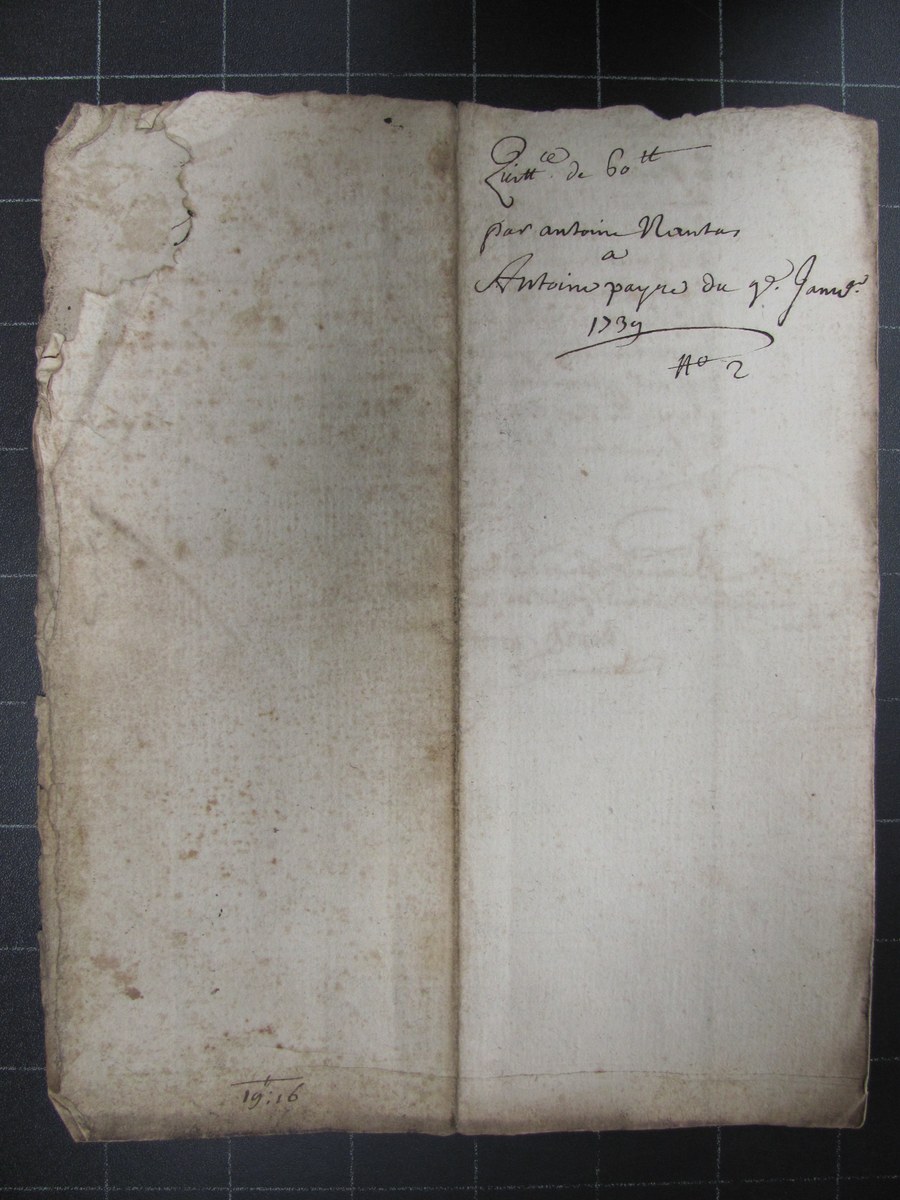 Quitt.ce de 60 tt
par antoine Nantas
a
Antoine payre du 9e. Janvr.
1739
No 2
19: 16